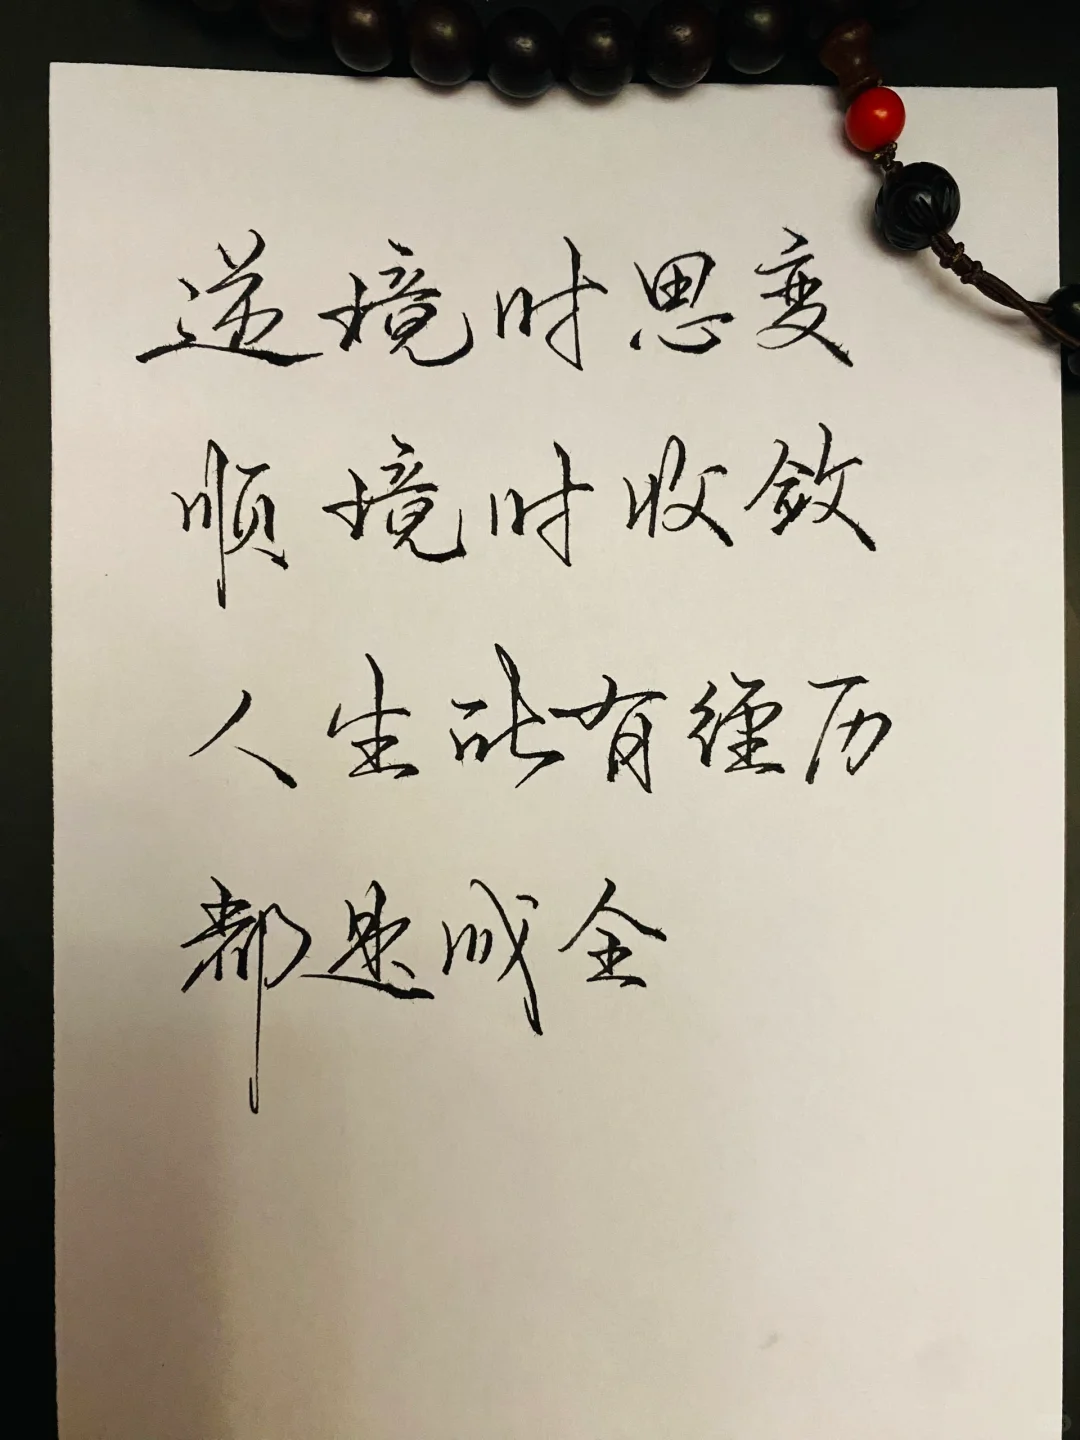 逆境时思变
顺境时收敛
人生所有经历
都是成全